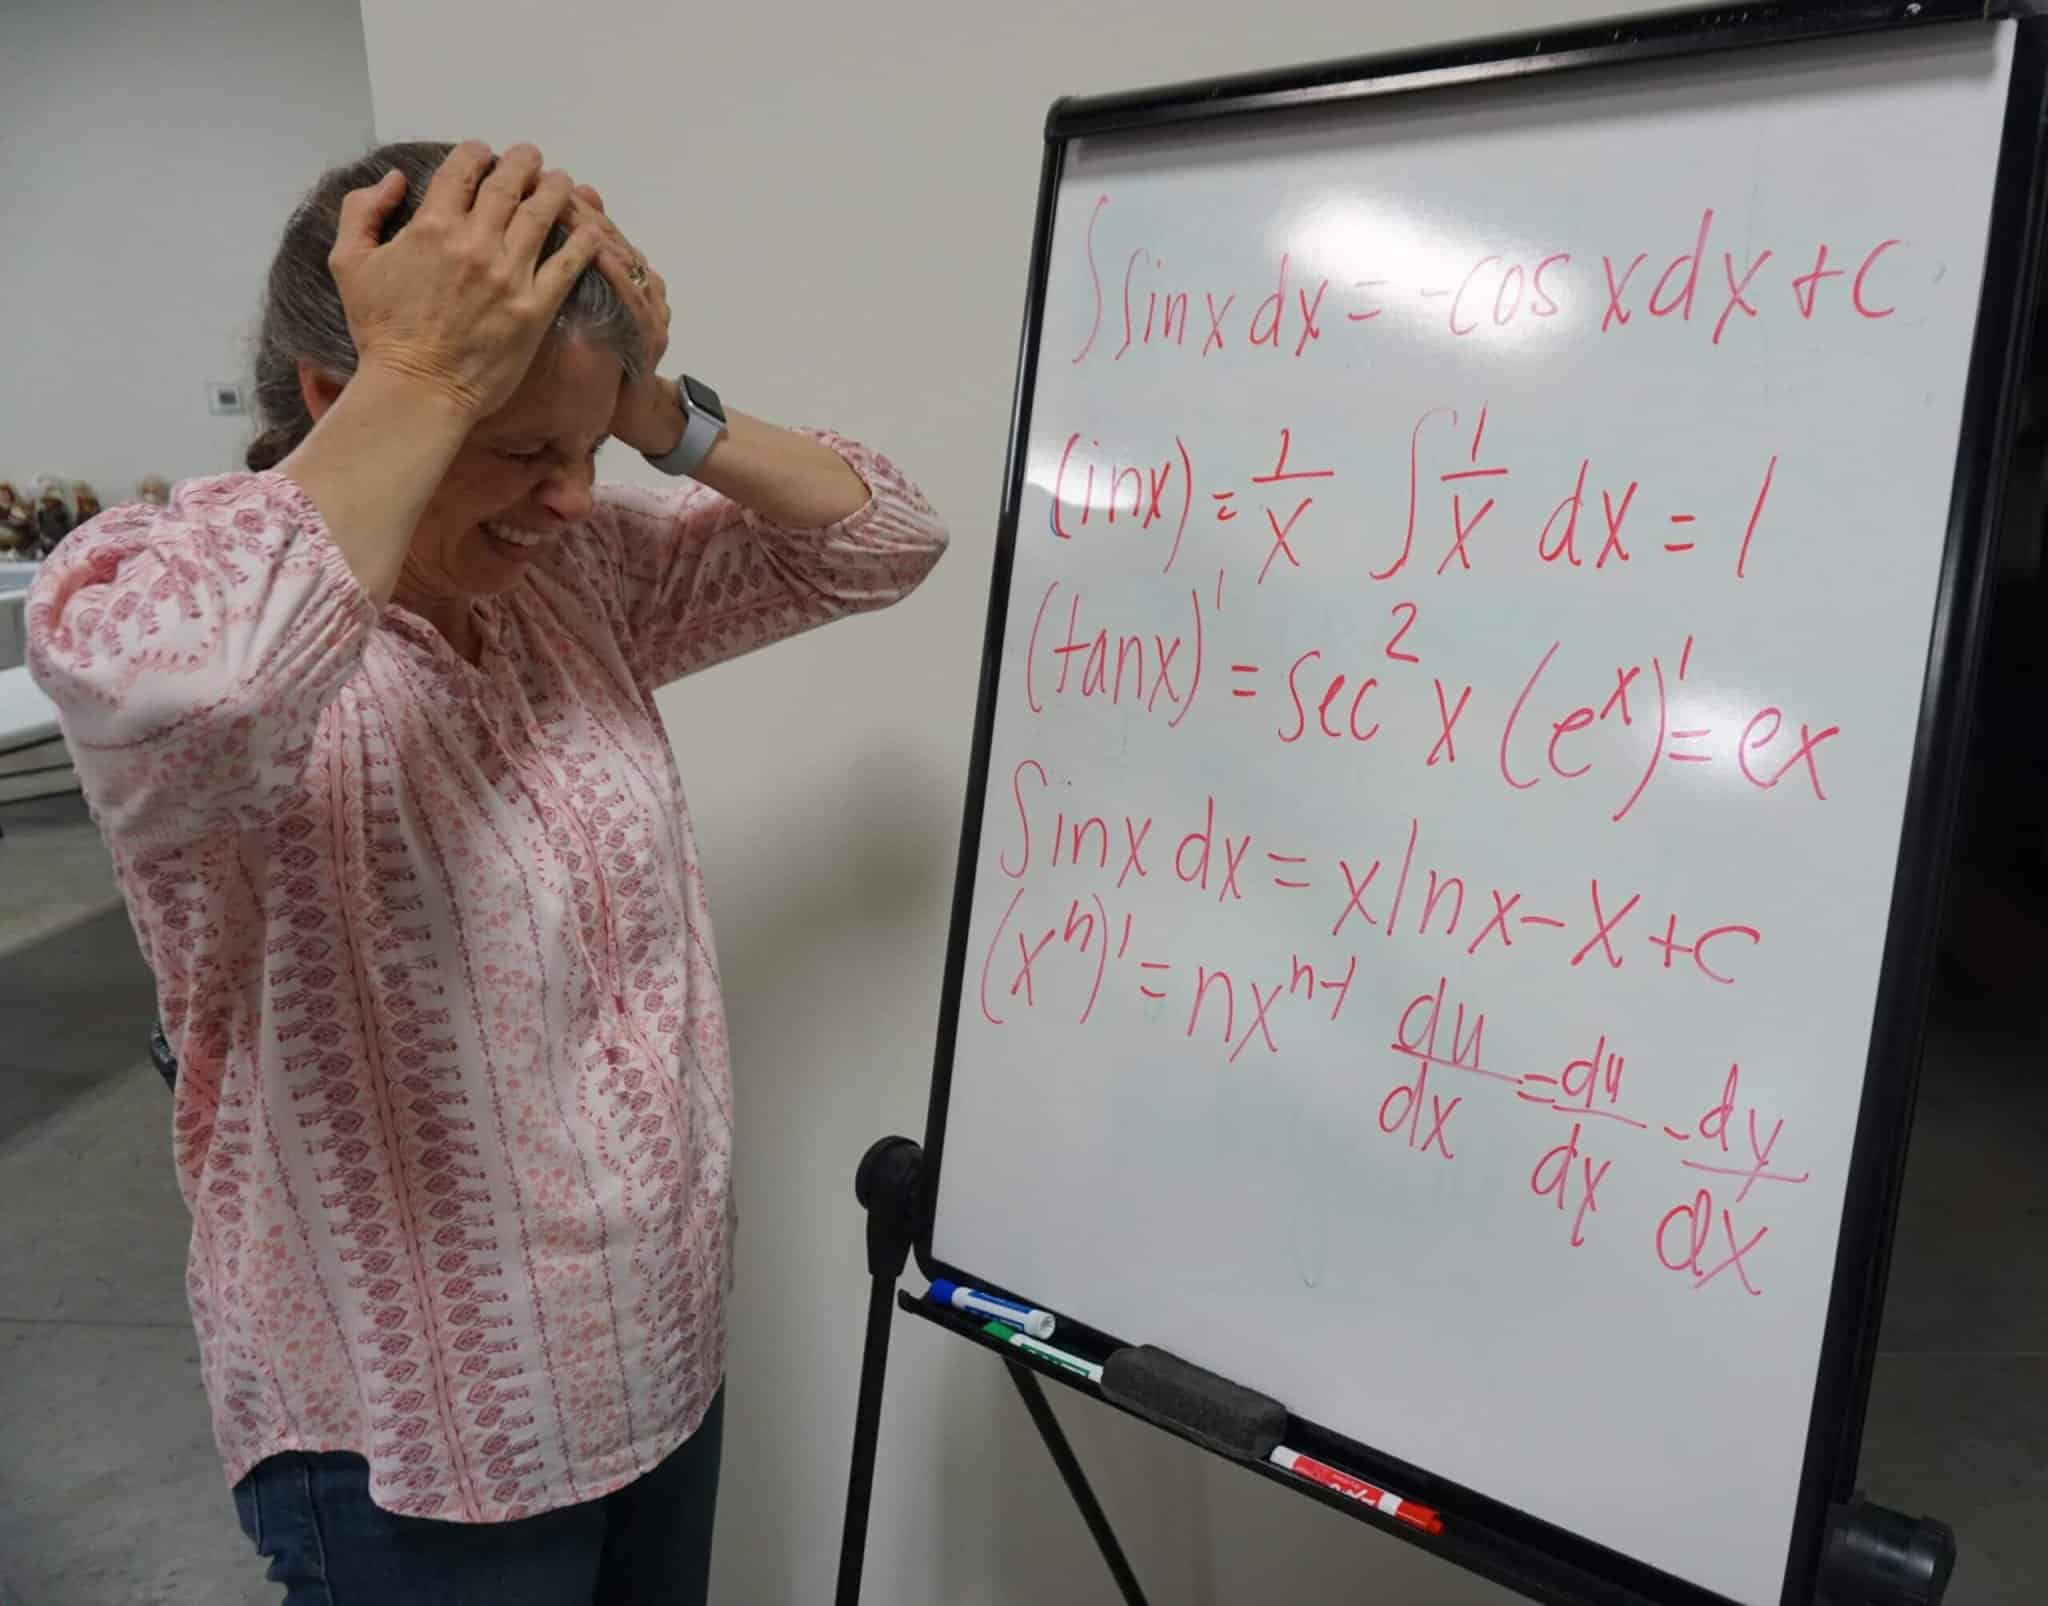 ∫sinxdx=-cosxdx+c
(inx)=1/x ∫1/x dx=1
(tanx)'=sec²x (eˣ)'=ex
∫inxdx=xlnx-x+c
(xⁿ)'=nxⁿ⁻¹ du/dx=du/dy-dy/dx